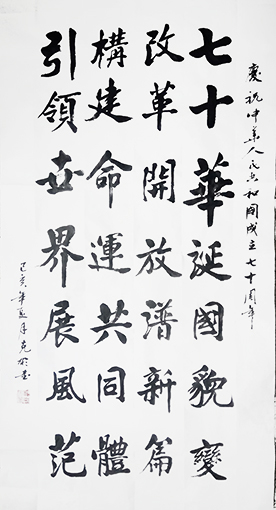 慶祝中華人民共和國成立七十周年
七十華誕國貌變
改革開放譜新篇
構建命運共同體
引領世界展風范
己亥年夏月克明書